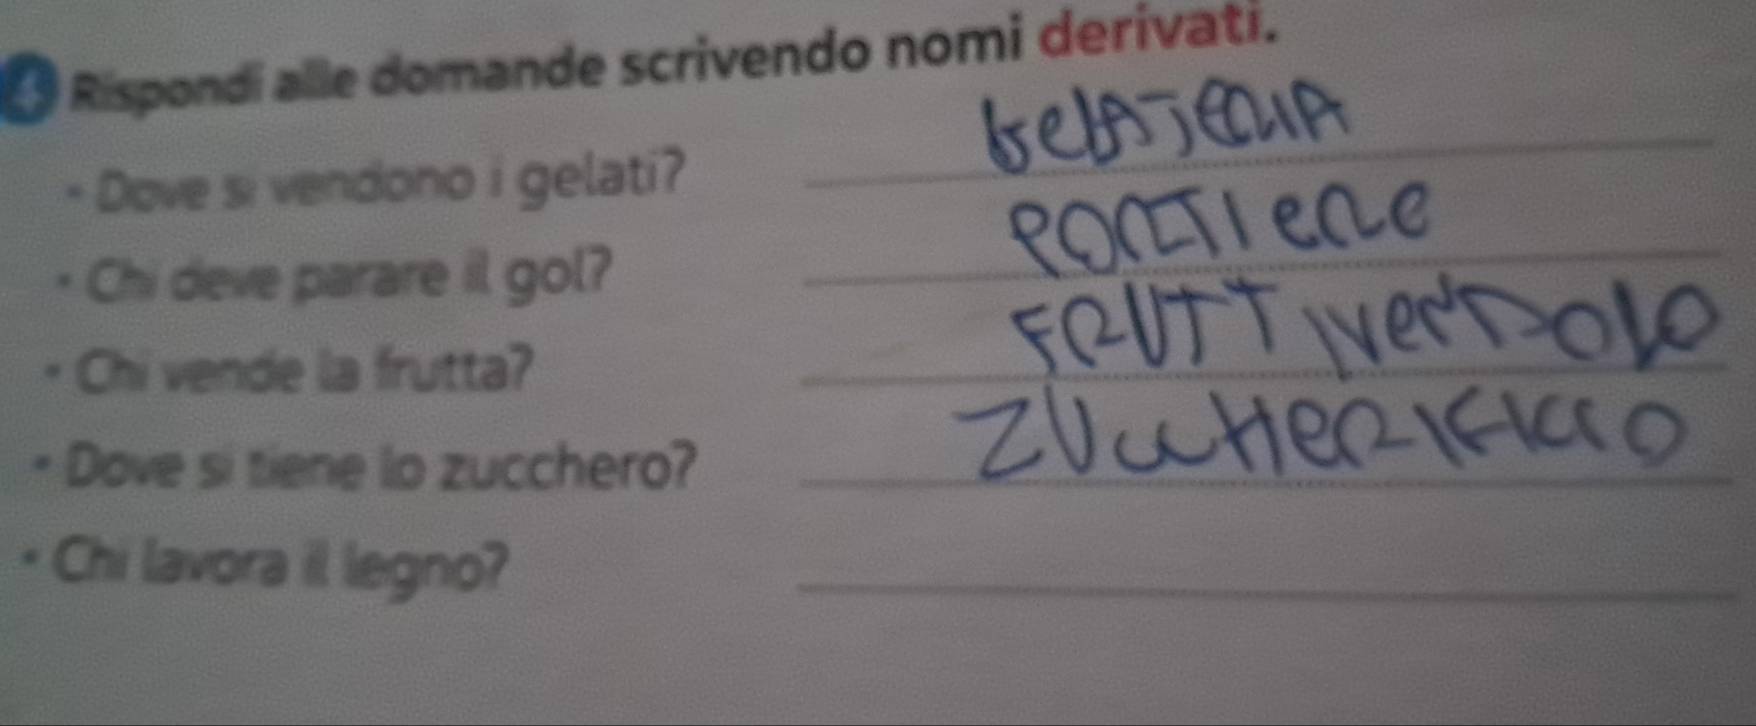 4 Rispondi alle domande scrivendo nomi derivati.
• Dove si vendono i gelati? GelATeRIA
• Chi deve parare il gol? PORTIeRe
• Chi vende la frutta? FRUTTIVeNDOLO
• Dove si tiene lo zucchero? ZUccHeRIFICIO
• Chi lavora il legno?